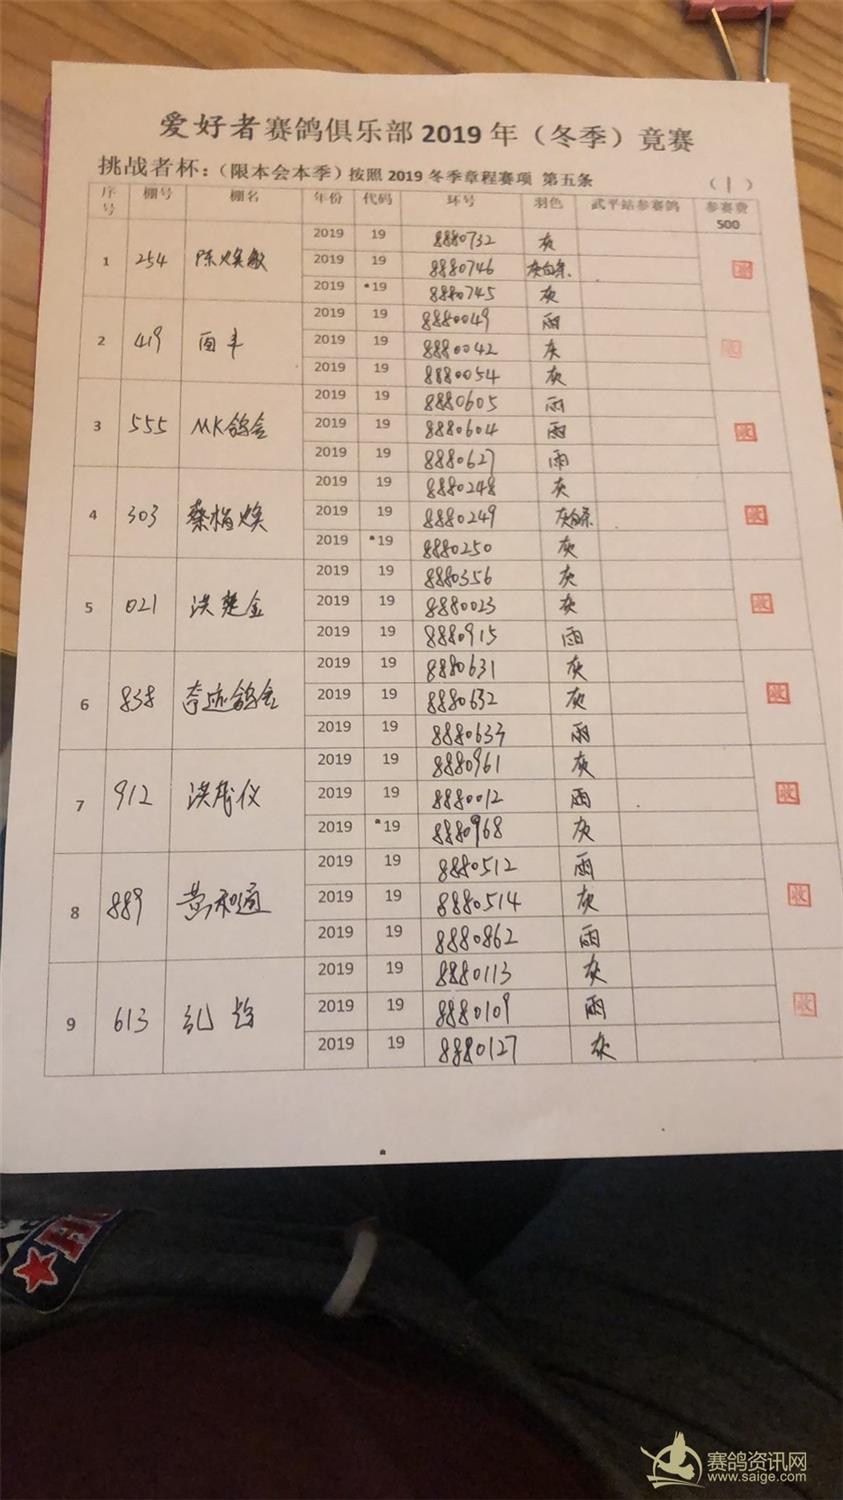 爱好者赛鸽俱乐部 2019 年（冬季）竟赛
挑战者杯：（限本会本季）按照 2019 冬季章程赛项 第五条 （1）
序号 棚号 棚名 年份 代码 环号 羽色 武平站参赛鸽 参赛费 500
2019 19 8880732 灰
1 254 陈焕敏 2019 19 8880746 灰白条
2019 19 8880745 灰
2019 19 8880049 雨
2 419 面丰 2019 19 8880042 灰
2019 19 8880054 灰
2019 19 8880605 雨
3 555 MK鸽舍 2019 19 8880604 雨 收
2019 19 8880627 雨
2019 19 8880248 灰
4 303 蔡楷焕 2019 19 8880249 灰白条 收
2019 19 8880250 灰
2019 19 8880356 灰
5 021 洪楚金 2019 19 8880023 灰 收
2019 19 8880915 雨
2019 19 8880631 灰
6 838 奇迹鸽舍 2019 19 8880632 灰 收
2019 19 8880633 雨
2019 19 8880961 灰
7 912 洪茂仪 2019 19 8880012 雨 收
2019 19 8880968 灰
2019 19 8880512 雨
8 889 黄和通 2019 19 8880514 灰 收
2019 19 8880862 雨
2019 19 8880113 灰
9 613 2019 19 8880109 雨 收
2019 19 8880127 灰
赛鸽资讯网
www.saige.com